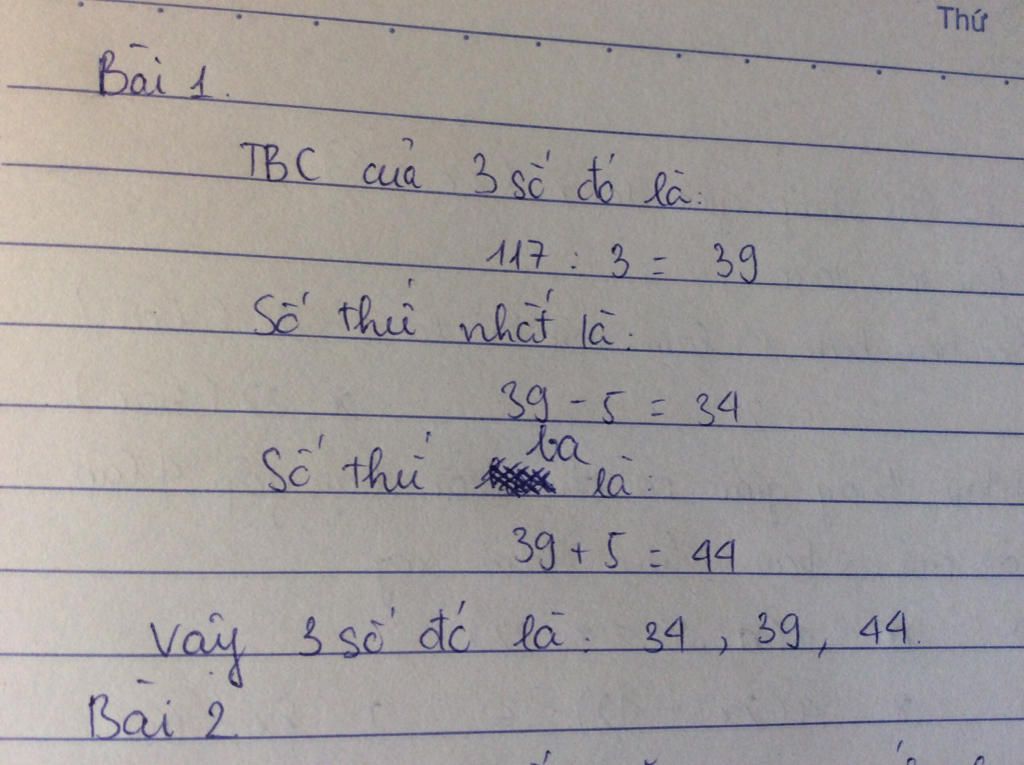 Thứ
Bài 1.
TBC của 3 số đó là:
117 : 3 = 39
Số thứ nhất là:
39 - 5 = 34
Số thứ ba là:
39 + 5 = 44
Vậy 3 số đó là: 34, 39, 44.
Bài 2.